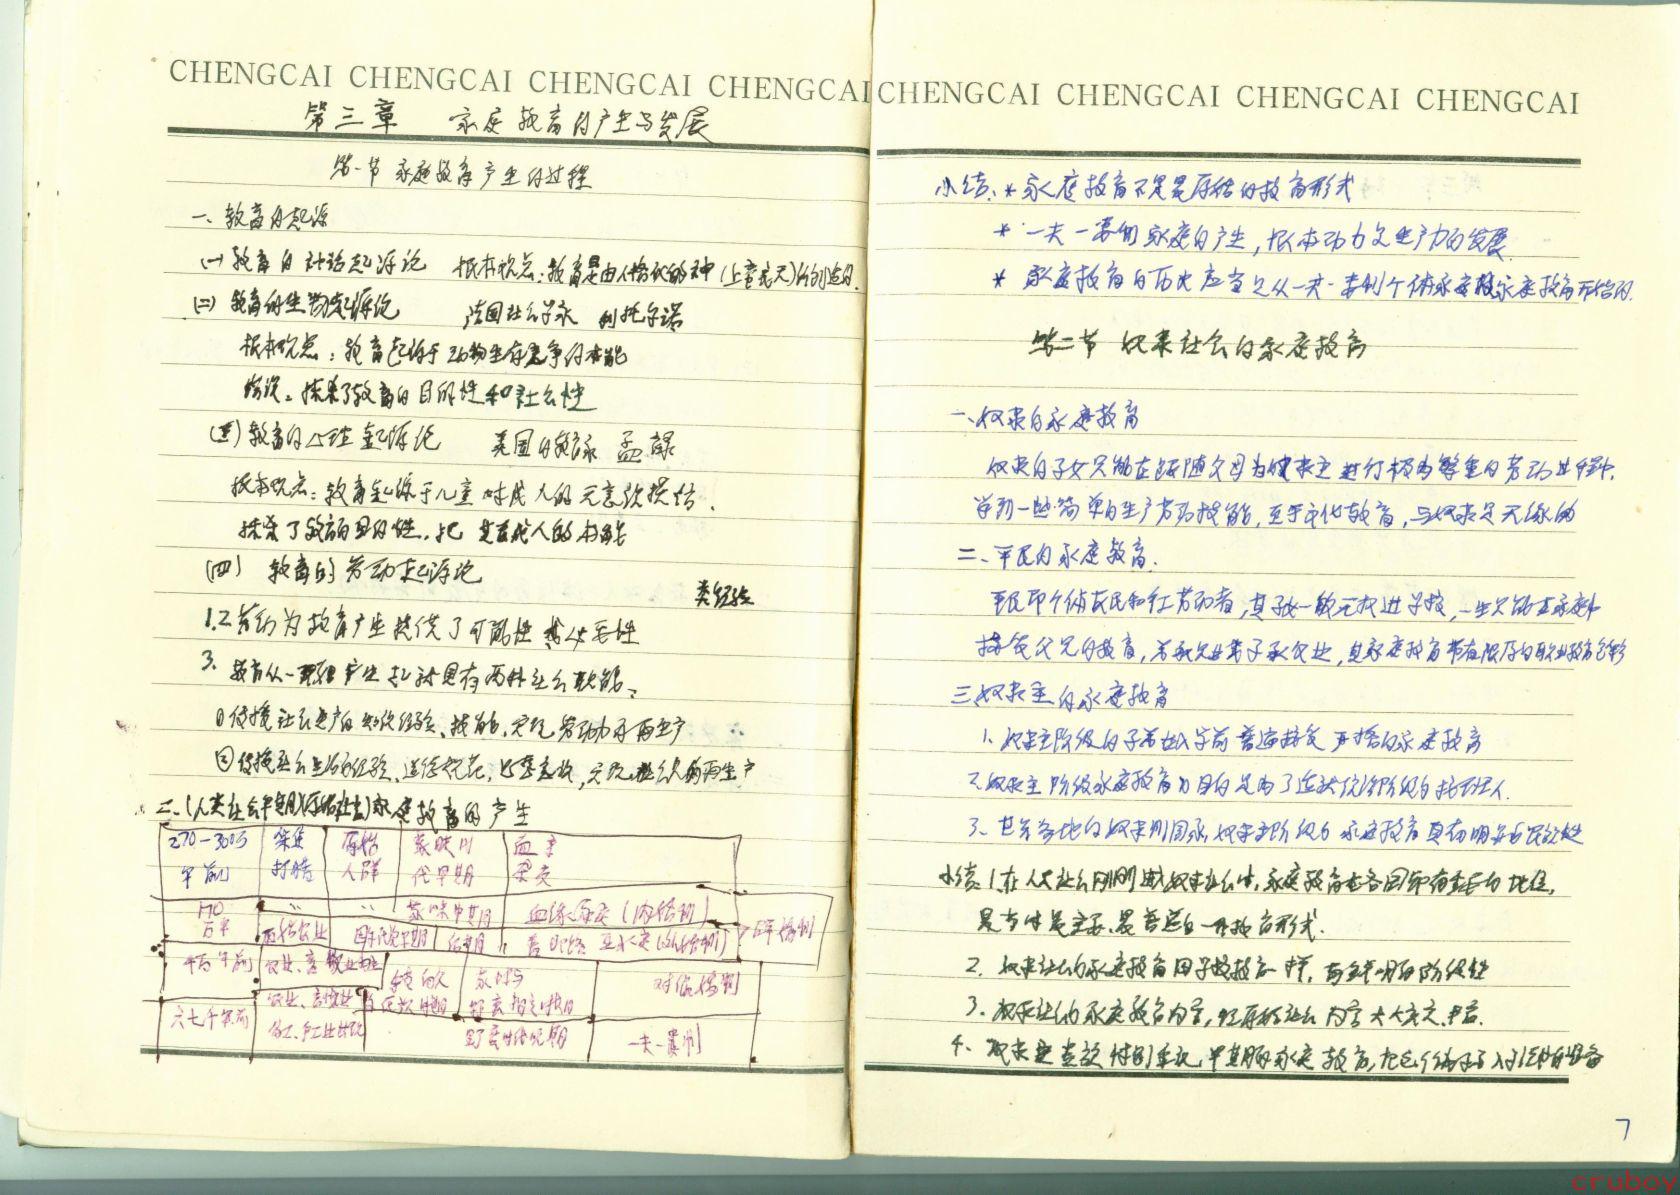 CHENGCAI CHENGCAI CHENGCAI CHENGCAI
第三章 家庭教育的产生与发展
第一节 家庭教育产生的过程
一、教育的起源
(一)教育的神话起源论 根本观点:教育是由人格化的神(上帝或天)所创造的.
(二)教育的生物起源论 法国社会学家 利托尔诺
根本观点:教育起源于动物生存竞争的本能
错误:抹杀了教育的目的性和社会性
(三)教育的心理起源论 美国的教育家 孟禄
根本观点:教育起源于儿童对成人的无意识模仿.
抹杀了教育的目的性,把
(四)教育的劳动起源论
类经验
1.2 劳动为教育产生提供了可能性
3. 教育从一 产生起就具有两种社会职能、
①传授社会生产的知识经验、技能,实现劳动力的再生产
②传授社会生活的经验、道德规范、 ,实现 的再生产
二、(人类社会早期)(原始社会)家庭教育的产生
270-300万年前 采集打猎 原始人群 蒙昧时代早期
170万年 " " 蒙昧中期 血缘家庭(内婚制)
群婚制
千百年前 农业、畜牧业
对偶婚制
六七千年前 一夫一妻制
CHENGCAI CHENGCAI CHENGCAI CHENGCAI
小结:* 家庭教育不是最原始的教育形式
* 一夫一妻制家庭的产生,根本动力是生产力的发展
* 家庭教育的历史应当是从一夫一妻制个体家庭 家庭教育开始的.
第二节 奴隶社会的家庭教育
一、奴隶的家庭教育
奴隶的子女只能在跟随父母为奴隶主进行极为繁重的劳动过程中,
学到一些简单的生产劳动技能,至于文化教育,与奴隶是无缘的
二、平民的家庭教育.
平民即个体农民和手工劳动者,其子女一般无权进学校,一生只能在家庭中
接受父兄的教育, 其家庭教育带有浓厚的职业教育色彩
三、奴隶主的家庭教育
1. 奴隶主阶级的子弟在入学前普遍接受严格的家庭教育
2. 奴隶主阶级家庭教育的目的是为了造就统治阶级的接班人.
3、世界各地的奴隶制国家,奴隶主阶级的家庭教育具有明显的民族性
小结:1.在人类社会刚刚进入奴隶社会时,家庭教育在各国都有重要的地位,
是当时最主要、最普遍的一种教育形式.
2. 奴隶社会的家庭教育同学校教育一样,有鲜明的阶级性
3. 奴隶社会的家庭教育内容,较原始社会内容大大充实、丰富.
4. 奴隶主贵族特别重视早期的家庭教育,
7
cruboy